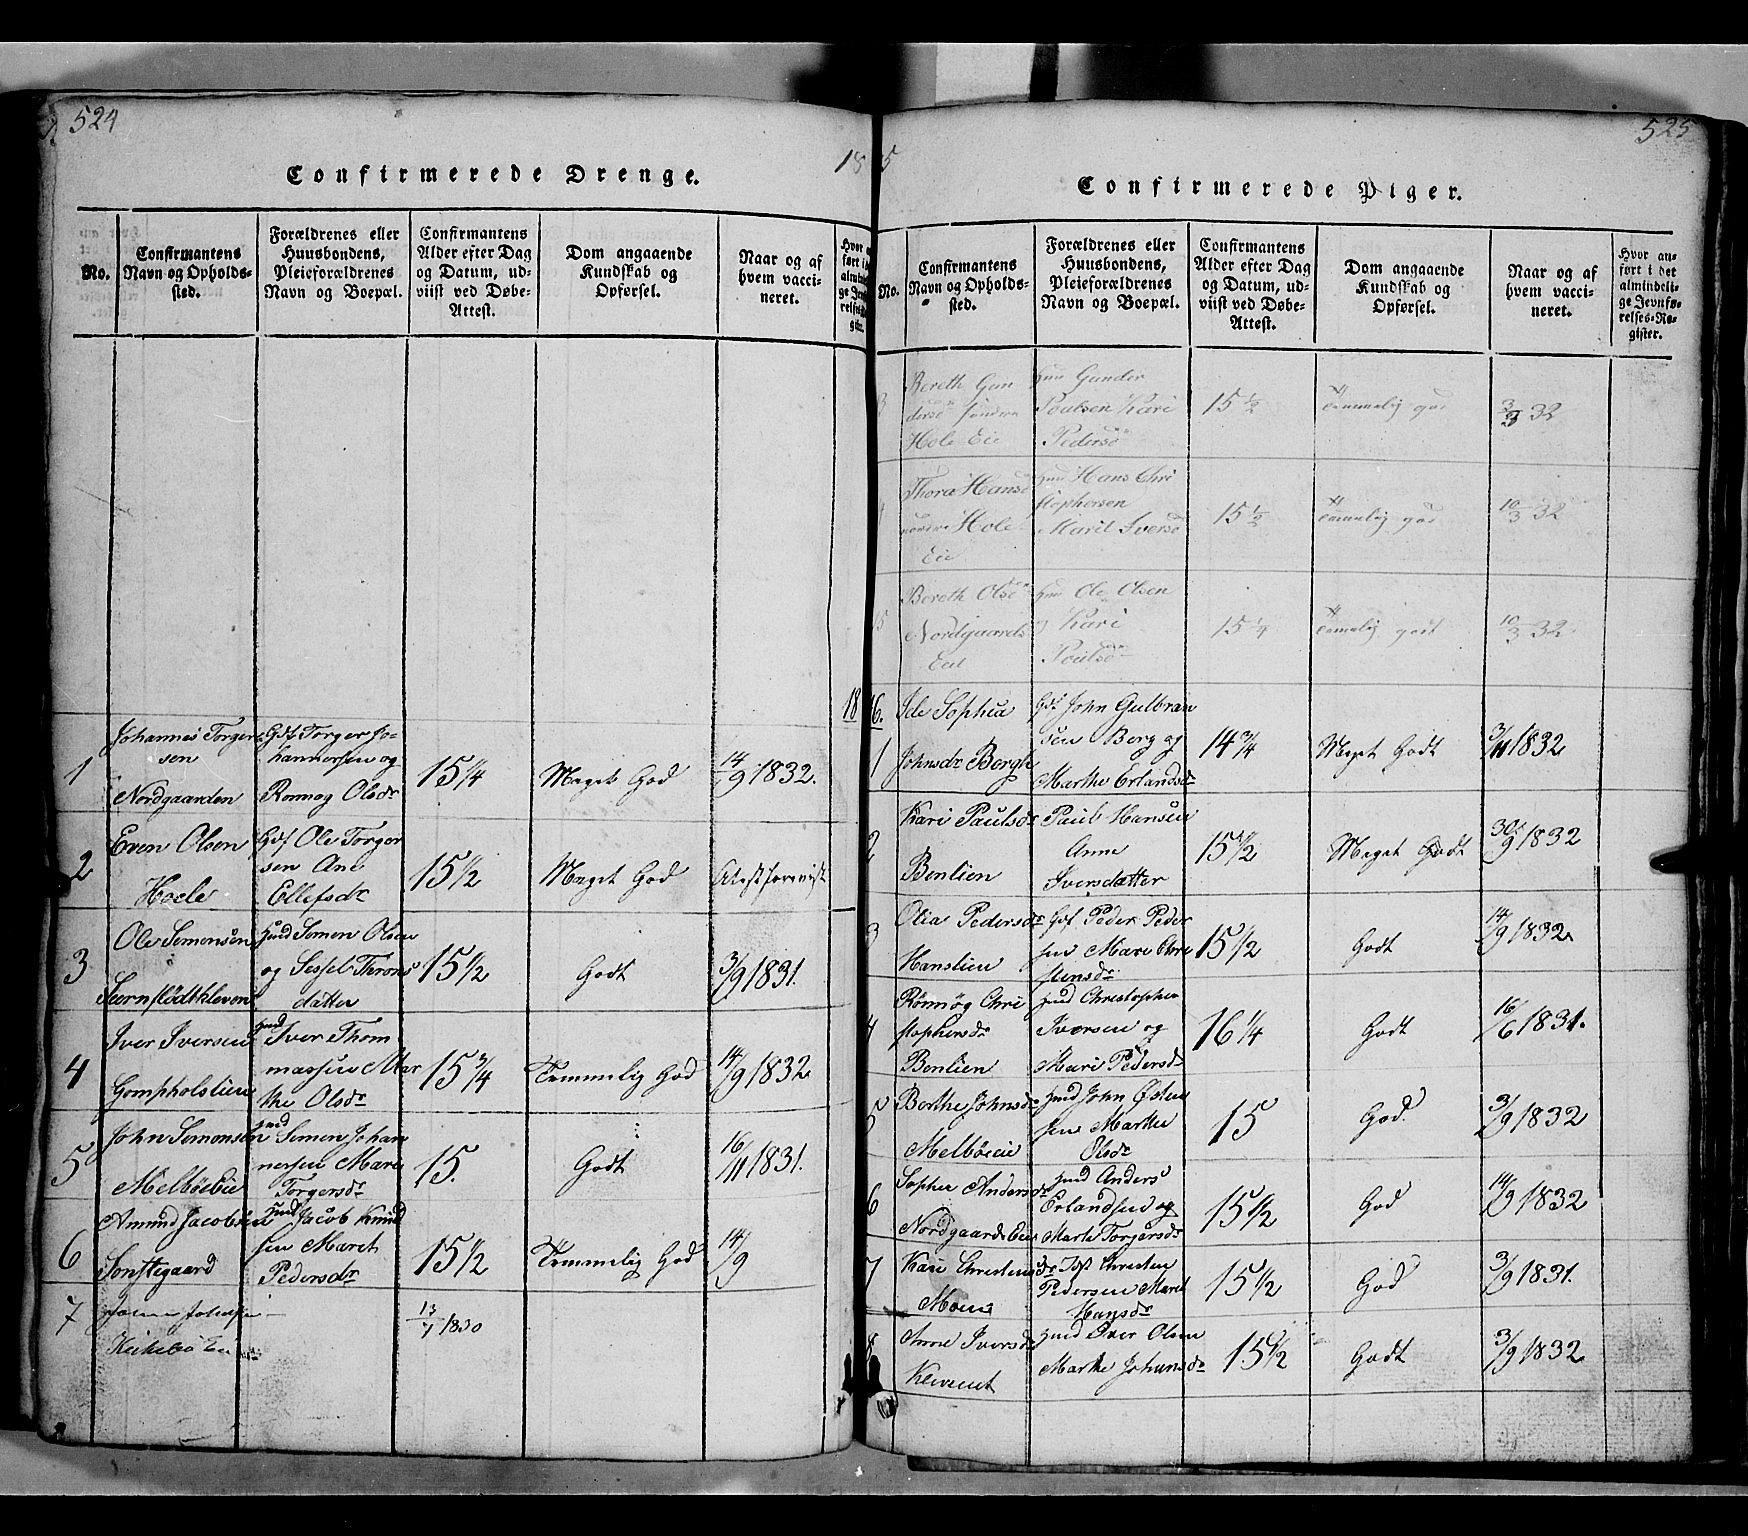 524
Confirmerede Drenge.
No.
Confirmantens
Navn og Opholds-
sted.
Forældrenes eller
Huusbondens,
Pleieforældrenes
Navn og Boepæl.
Confirmantens
Alder efter Dag
og Datum, ud-
viist ved Døbe-
Attest.
Dom angaaende
Kundskab og
Opførsel.
Naar og af
hvem vacci-
neret.
1
Johannes Torger
sen
Nordgaarden
Gdf Torger Jo-
hannersen og
Ronnog Olsdr
15 1/4
Meget God
14/9 1832.
2
Even Olsen
Hoele
Gdf Ole Torger
sen Ane
Ellefsdr
15 1/2
Meget God
Atest forevist
3
Ole Semonsen
Husd Semon Olsen
og Sessel Throns
datter
15 1/2
Godt
3/9 1831.
4
Iver Iversen
Gompholslien
Husd Iver Thom
massen Mar
the Olsdr
15 3/4
Temmelig God
14/9 1832.
5
John Semonsen
Melböeeie
Husd Semon Johan
nersen Mari
Torgersdr
15.
Godt
16/11 1831.
6
Amund Jacobsen
Sonstegaard
Husd Jacob Knud
sen Maret
Pedersdr
15 1/2
Temmelig God
14/9
7
Kirkebö Eie
13/7 1830
525
1835
Confirmerede Piger.
No.
Confirmantens
Navn og Opholds-
sted.
Forældrenes eller
Huusbondens,
Pleieforældrenes
Navn og Boepæl.
Confirmantens
Alder efter Dag
og Datum, ud-
viist ved Døbe-
Attest.
Dom angaaende
Kundskab og
Opførsel.
Naar og af
hvem vacci-
neret.
Hvor an-
ført i det
almindeli-
ge Jevnfø-
relses-Re-
gister.
3
Bereth Gun
dersd
Hole Eie
Hus Gunder
Poulsen Kari
Pedersd
15 1/2
Temmelig god
3/9 32
Thora Hansd
Hole
Eie
Hus Hans Chri
stophersen
Marit Iversd
15 1/2
Temmelig god
10/3 32
5
Bereth Olsd
Nordgaards
Eie
Hus Ole Olsen
og Kari
Poulsd
15 1/4
Temmelig godt
10/3 32
1836.
1
Ide Sophia
Johnsdr Bergh
Gdf John Gulbran
sen Berg og
Marthe Erlandsdr
14 3/4
Meget Godt
3/11 1832
2
Kari Paulsdr
Benlien
Paul Hansen
Anne
Iversdatter
15 1/2
Meget Godt
30/9 1832
3
Olia Pedersdr
Hanslien
Gdf Peder Peder
sen Mari Chri
stensdr
15 1/2
Godt
14/9 1832.
4
Rönnög Chri
stophersdr
Benlien
Husd Christopher
Iversen og
Mari Pedersdr
16 1/4
Godt
16/6 1831.
5
Berthe Johnsdr
Melböeeie
Husd John Østen
sen Marthe
Olsdr
15
God
3/9 1832
6
Sophie Andersdr
Nordgaards Eie
Husd Anders
Erlandsen og
Marte Torgersdr
15 1/2
God
14/9 1832
7
Kari Christensdr
Moen
Christen
Pedersen Maret
Hansdr
15 1/2
God
3/9 1831.
8
Anne Iversdr
Klevenet
Husd Iver Olsen
Marthe Johansdr
15 1/2
Godt
3/9 1832